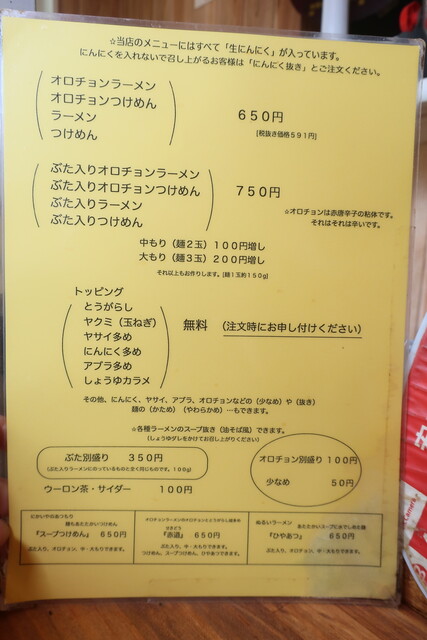 ☆当店のメニューにはすべて「生にんにく」が入っています。
にんにくを入れないで召し上がるお客様は「にんにく抜き」とご注文ください。
オロチョンラーメン
オロチョンつけめん
ラーメン
つけめん
650円
[税抜き価格591円]
ぶた入りオロチョンラーメン
ぶた入りオロチョンつけめん
ぶた入りラーメン
ぶた入りつけめん
750円
☆オロチョンは赤唐辛子の粘体です。
それはそれは辛いです。
中もり(麺2玉)100円増し
大もり(麺3玉)200円増し
それ以上もお作りします。[麺1玉約150g]
トッピング
とうがらし
ヤクミ(玉ねぎ)
ヤサイ多め
にんにく多め
アブラ多め
しょうゆカラメ
無料 (注文時にお申し付けください)
その他、にんにく、ヤサイ、アブラ、オロチョンなどの(少なめ)や(抜き)
麺の(かため)(やわらかめ)…もできます。
☆各種ラーメンのスープ抜き(油そば風)できます。
(しょうゆダレをかけてお召し上がりください)
ぶた別盛り 350円
(ぶた入りラーメンにのっているものと全く同じものです。100g)
オロチョン別盛り 100円
少なめ 50円
ウーロン茶・サイダー 100円
にかいやのあつもり
麺もあたたかいつけめん
『スープつけめん』 650円
ぶた入り、オロチョン、中・大もりできます。
オロチョンラーメンのオロチョンととうがらし超多め
せきどう
『赤道』 650円
ぶた入り、中・大もりできます。
つけめん、スープつけめん、ひやあつできます。
ぬるいラーメン
あたたかいスープに水でしめた麺
『ひやあつ』 650円
ぶた入り、オロチョン、中・大もりできます。